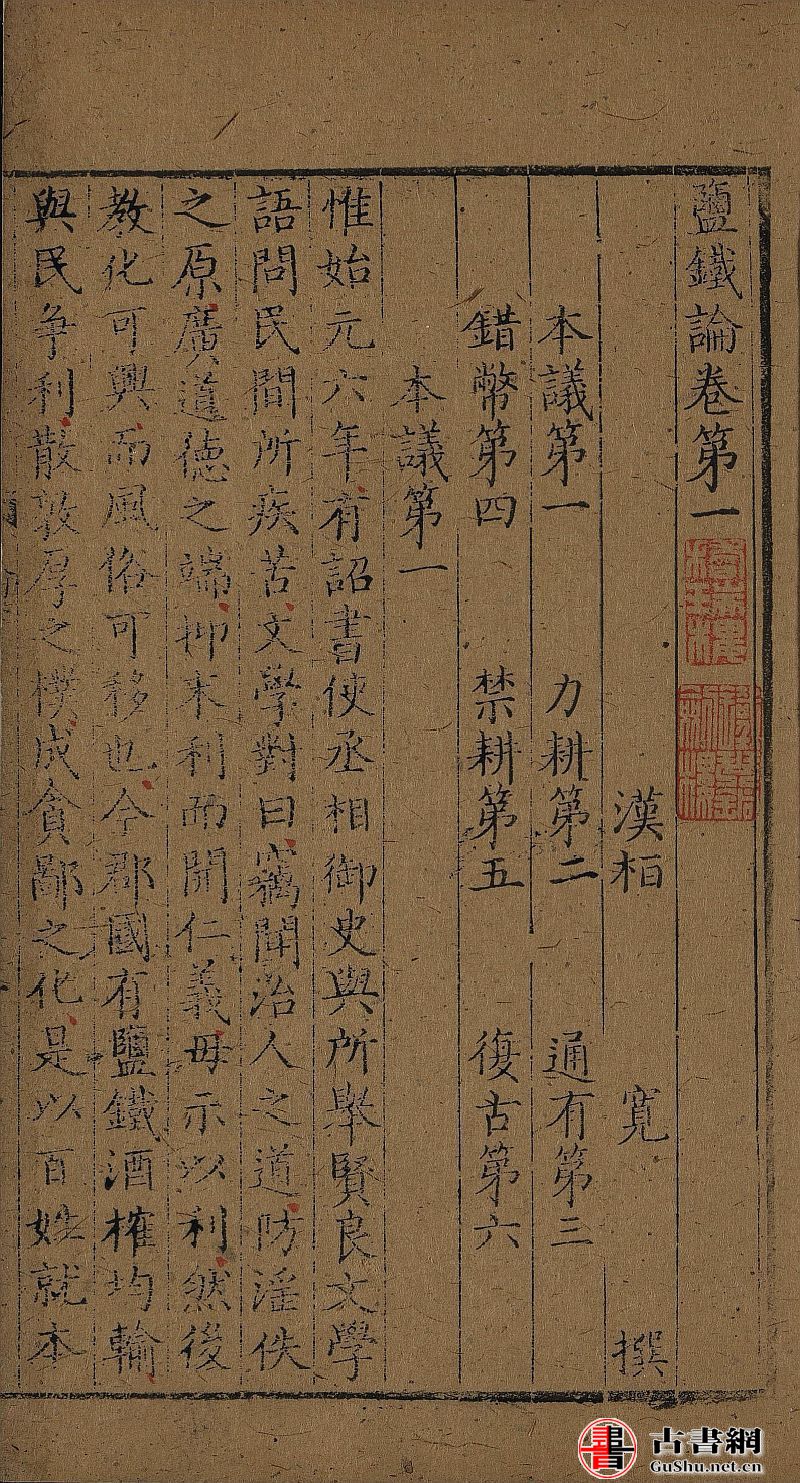 鹽鐵論卷第一
漢桓 寛 撰
本議第一 力耕第二 通有第三
錯幣第四 禁耕第五 復古第六
本議第一
惟始元六年有詔書使丞相御史與所舉賢良文學
語問民間所疾苦文學對曰竊聞治人之道防淫佚
之原廣道德之端抑末利而開仁義毋示以利然後
教化可興而風俗可移也今郡國有鹽鐵酒榷均輸
與民争利散敦厚之樸成貪鄙之化是以百姓就本
古書網
GuShu.net.cn